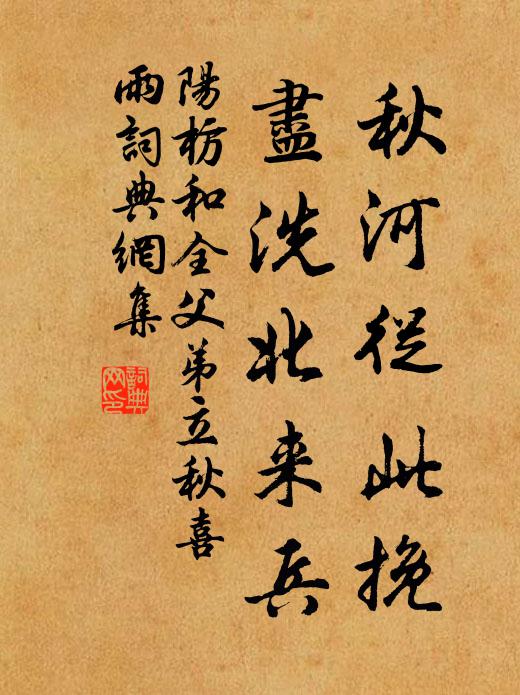 秋河從此挽
盡洗北来兵
陽枋和全父弟立秋喜
雨詞典網集
詞典
网印